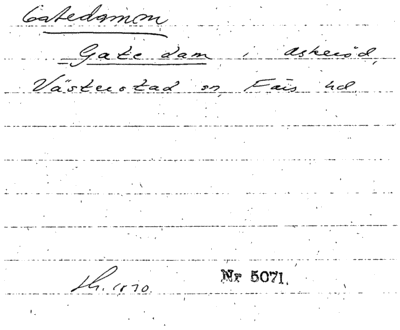 Gatedammen
Gate dam i Askeröd,
Västerstad sn, Färs hd
Lh. 1870. Nr 5071.